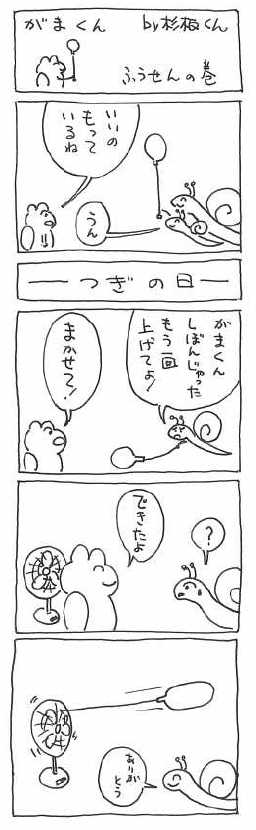 がまくん
by杉板くん
ふうせんの巻
いいの
もって
いるね
うん
つぎの日
がまくん
しぼんじゃった
もう一回
上げてよ!
まかせて!
?
できたよ
ありが
とう